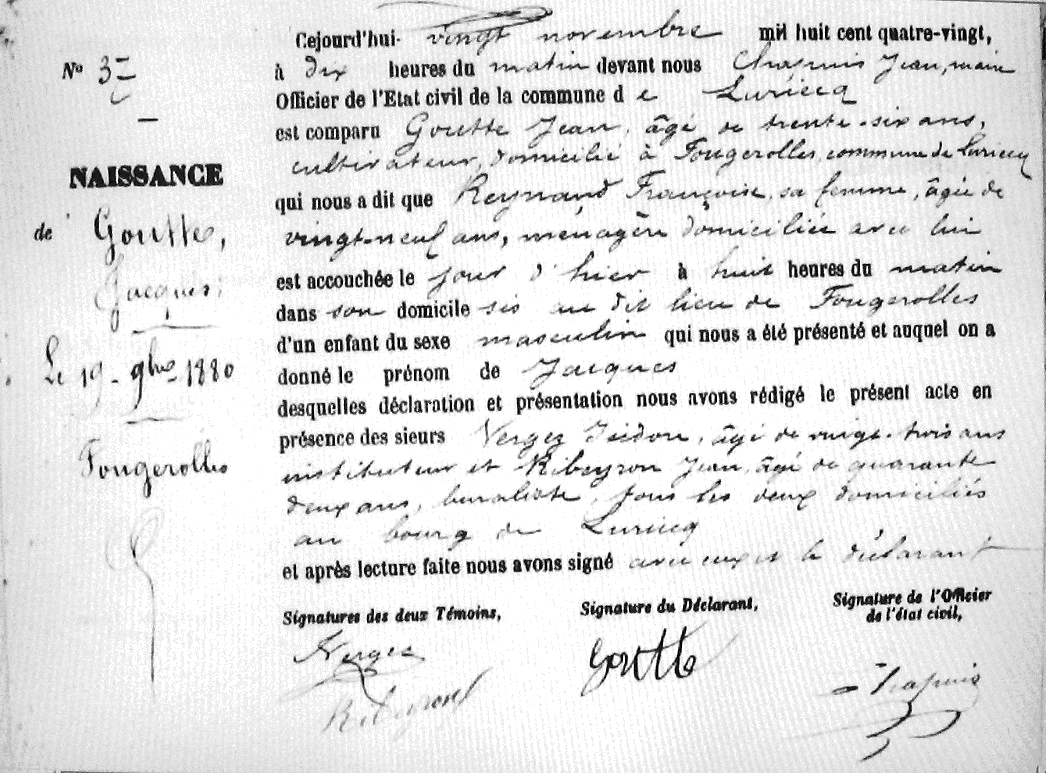 Nº 37
NAISSANCE
de Goutte,
Jacques,
Le 19 - 9bre 1880
Fougerolles
Cejourd'hui vingt novembre mil huit cent quatre-vingt,
à dix heures du matin devant nous Chapuis Jean, maire
Officier de l'Etat civil de la commune de Luriecq
est comparu Goutte Jean, âgé de trente-six ans,
cultivateur, domicilié à Fougerolles, commune de Luriecq
qui nous a dit que Reynaud Françoise, sa femme, âgée de
vingt-neuf ans, ménagère domiciliée avec lui
est accouchée le jour d'hier à huit heures du matin
dans son domicile sis au dit lieu de Fougerolles
d'un enfant du sexe masculin qui nous a été présenté et auquel on a
donné le prénom de Jacques
desquelles déclaration et présentation nous avons rédigé le présent acte en
présence des sieurs Vergez Isidore, âgé de vingt-trois ans
instituteur et Ribeyron Jean, âgé de quarante
deux ans, buraliste, tous les deux domiciliés
au bourg de Luriecq
et après lecture faite nous avons signé avec eux et le déclarant
Signatures des deux Témoins, Signature du Déclarant, Signature de l'Officier
de l'état civil,
Vergez Goutte Chapuis
Ribeyron